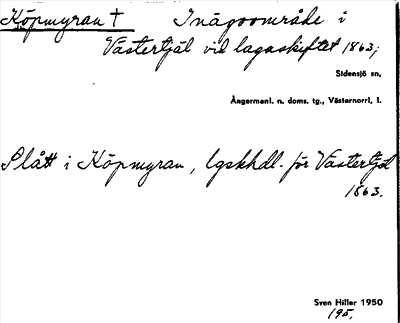 Köpmyran † Inägoområde i
Västertjäl vid lagaskiftet 1863;
Sidensjö sn,
Ångermanl. n. doms. tg., Västernorrl, l.
Slått i Köpmyran, lgskhdl. för Västertjäl
1863.
Sven Hiller 1950
195.